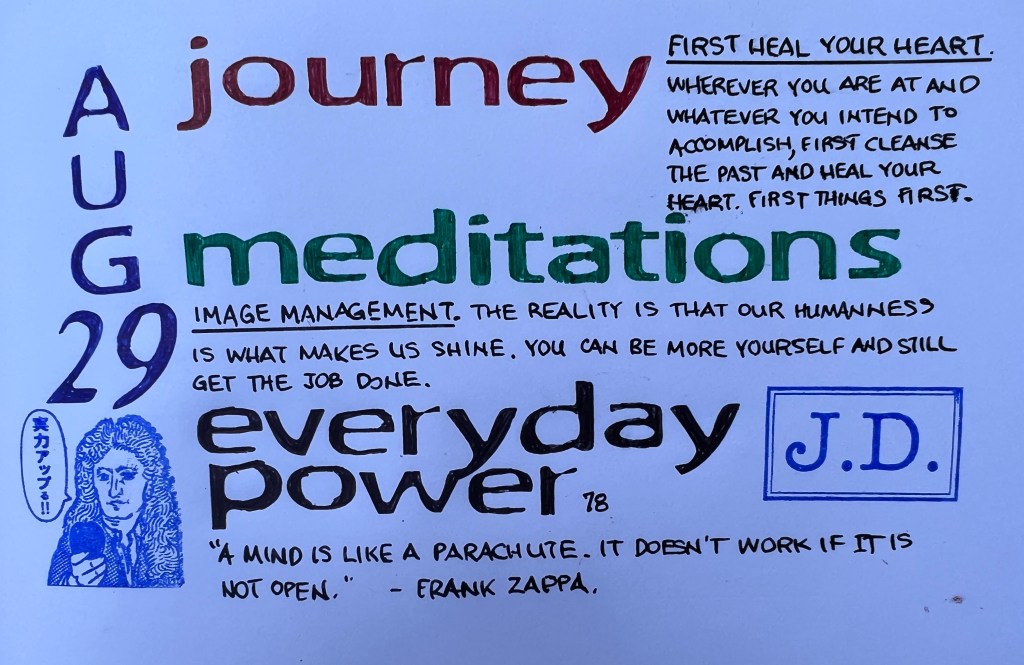 AUG
29
journey
FIRST HEAL YOUR HEART.
WHEREVER YOU ARE AT AND
WHATEVER YOU INTEND TO
ACCOMPLISH, FIRST CLEANSE
THE PAST AND HEAL YOUR
HEART. FIRST THINGS FIRST.
meditations
IMAGE MANAGEMENT. THE REALITY IS THAT OUR HUMANNESS
IS WHAT MAKES US SHINE. YOU CAN BE MORE YOURSELF AND STILL
GET THE JOB DONE.
everyday
power 78
J.D.
実力アップる!!
"A MIND IS LIKE A PARACHUTE. IT DOESN'T WORK IF IT IS
NOT OPEN." - FRANK ZAPPA.